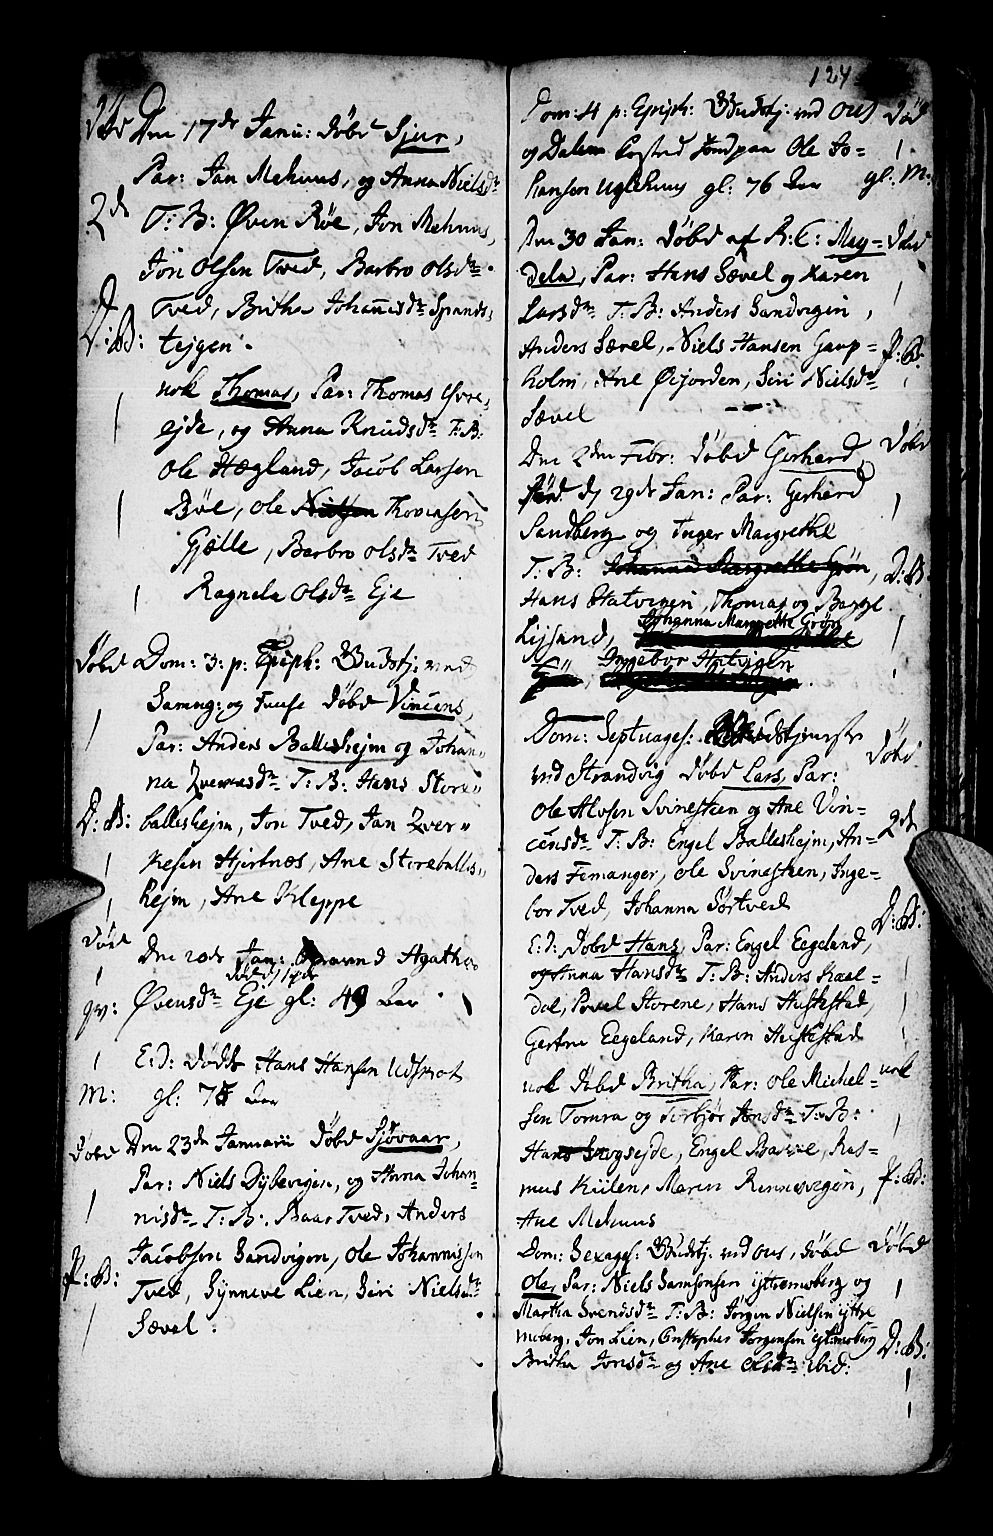 Døbt Den 17de Janu: døbt Sjur,
Par: Jan Mehuus, og Anna Nielsdr
2de T: B: Øven Røe, Jon Mehuus,
Jon Olsen Tved, Barbro Olsdr
D: B: Tved, Britha Johannisdr Spands,
tejgen.
nok Thomas, Par: Thomas Øvre,
ejde, og Anna Knudsdr T: B:
Ole Hægland, Jacob Larsen
Bøe, Ole Thorensen
Gjelle, Barbro Olsdr Tved
Ragnela Olsdr Eje
Døbt Dom: 3: p: Epiph: Gudstj: ved
Samng: og Fuuse døbt Vincens,
Par: Anders Balleshejm og Johan"
na Zverresdr T: B: Hans Store"
D: B: ballesheim, Jon Tved, Jan Zver"
resen Hjertnæs, Ane Storeballes"
hejm, Ane Kleppe
Død Den 20de Jan: Agatha
død d 17de
qv: Øvensdr Eje gl: 49 Aar
E: D: død Hans Hansen Udsmot
M: gl: 75 Aar
Døbt Den 23de Januarii døbt Sjøvaar,
Par: Niels Dybevigen, og Anna Johan-
nisdr T: B: Baar Tved, Anders
Jacobsen Sandvigen, Ole Johannissen
P: B: Tved, Synneve Lien, Siri Nielsdr
Sævel.
124
Dom: 4 p: Epiph: Gudstj: ved Ous Død
og Dalem Costed Jordpaa Ole Jo=
hansen Uglehuus gl: 76 Aar gl: M:
Den 30 Jan: døbt af R: C: Mag= Døbt
dela, Par: Hans Sævel og Karen
Larsdr T: B: Anders Sandvigen,
Anders Sævel, Niels Hansen Gaup= P: B:
holm, Ane Øijorden, Siri Nielsdr
Sævel
Den 2den Febr: døbt Gerhard, Døbt
død d 29de Jan: Par: Gerhard
Sandberg og Inger Margrethe
T: B: Johanna Margrethe Grøn, D: B:
Hans Hatvigen, Thomas og Baggel
Lysand, Johanna Margrethe Grøn
Ingebor Hatvigen
Dom: Septuages: Gudstjeneste Døbt
ved Strandvig døbt Lars, Par:
Ole Alvsen Svinesteen og Ane Vin= 2de
censdr T: B: Engel Ballesheim, An=
ders Femanger, Ole Svinesteen, Inge=
bor Tved, Johanna Sørtved D: B:
E: D: døbt Hans, Par: Engel Eegeland,
og Anna Hansdr T: B: Anders Kaal=
dal, Povel Storene, Hans Hustestad,
Gertru Eegeland, Karen Hustestad
nok døbt Britha, Par: Ole Michel= nok
sen Tomra og Torbjør Jonsdr T: B:
Hans Skogsejde, Engel Baxve, Ras=
mus Kiilen, Maren Rennevigen, P: B:
Ane Mehuus
Dom: Sexages: Gudstj: ved Ous, døbt Døbt
Ole, Par: Niels Samsonsen Yttremoberg og
Martha Svendsdr T: B: Jørgen Nielsen Yttre
moberg, Jon Lien, Cristopher Jørgensen Yttremoberg D: B:
Britha Jonsdr og Ane Olsdr ibid: